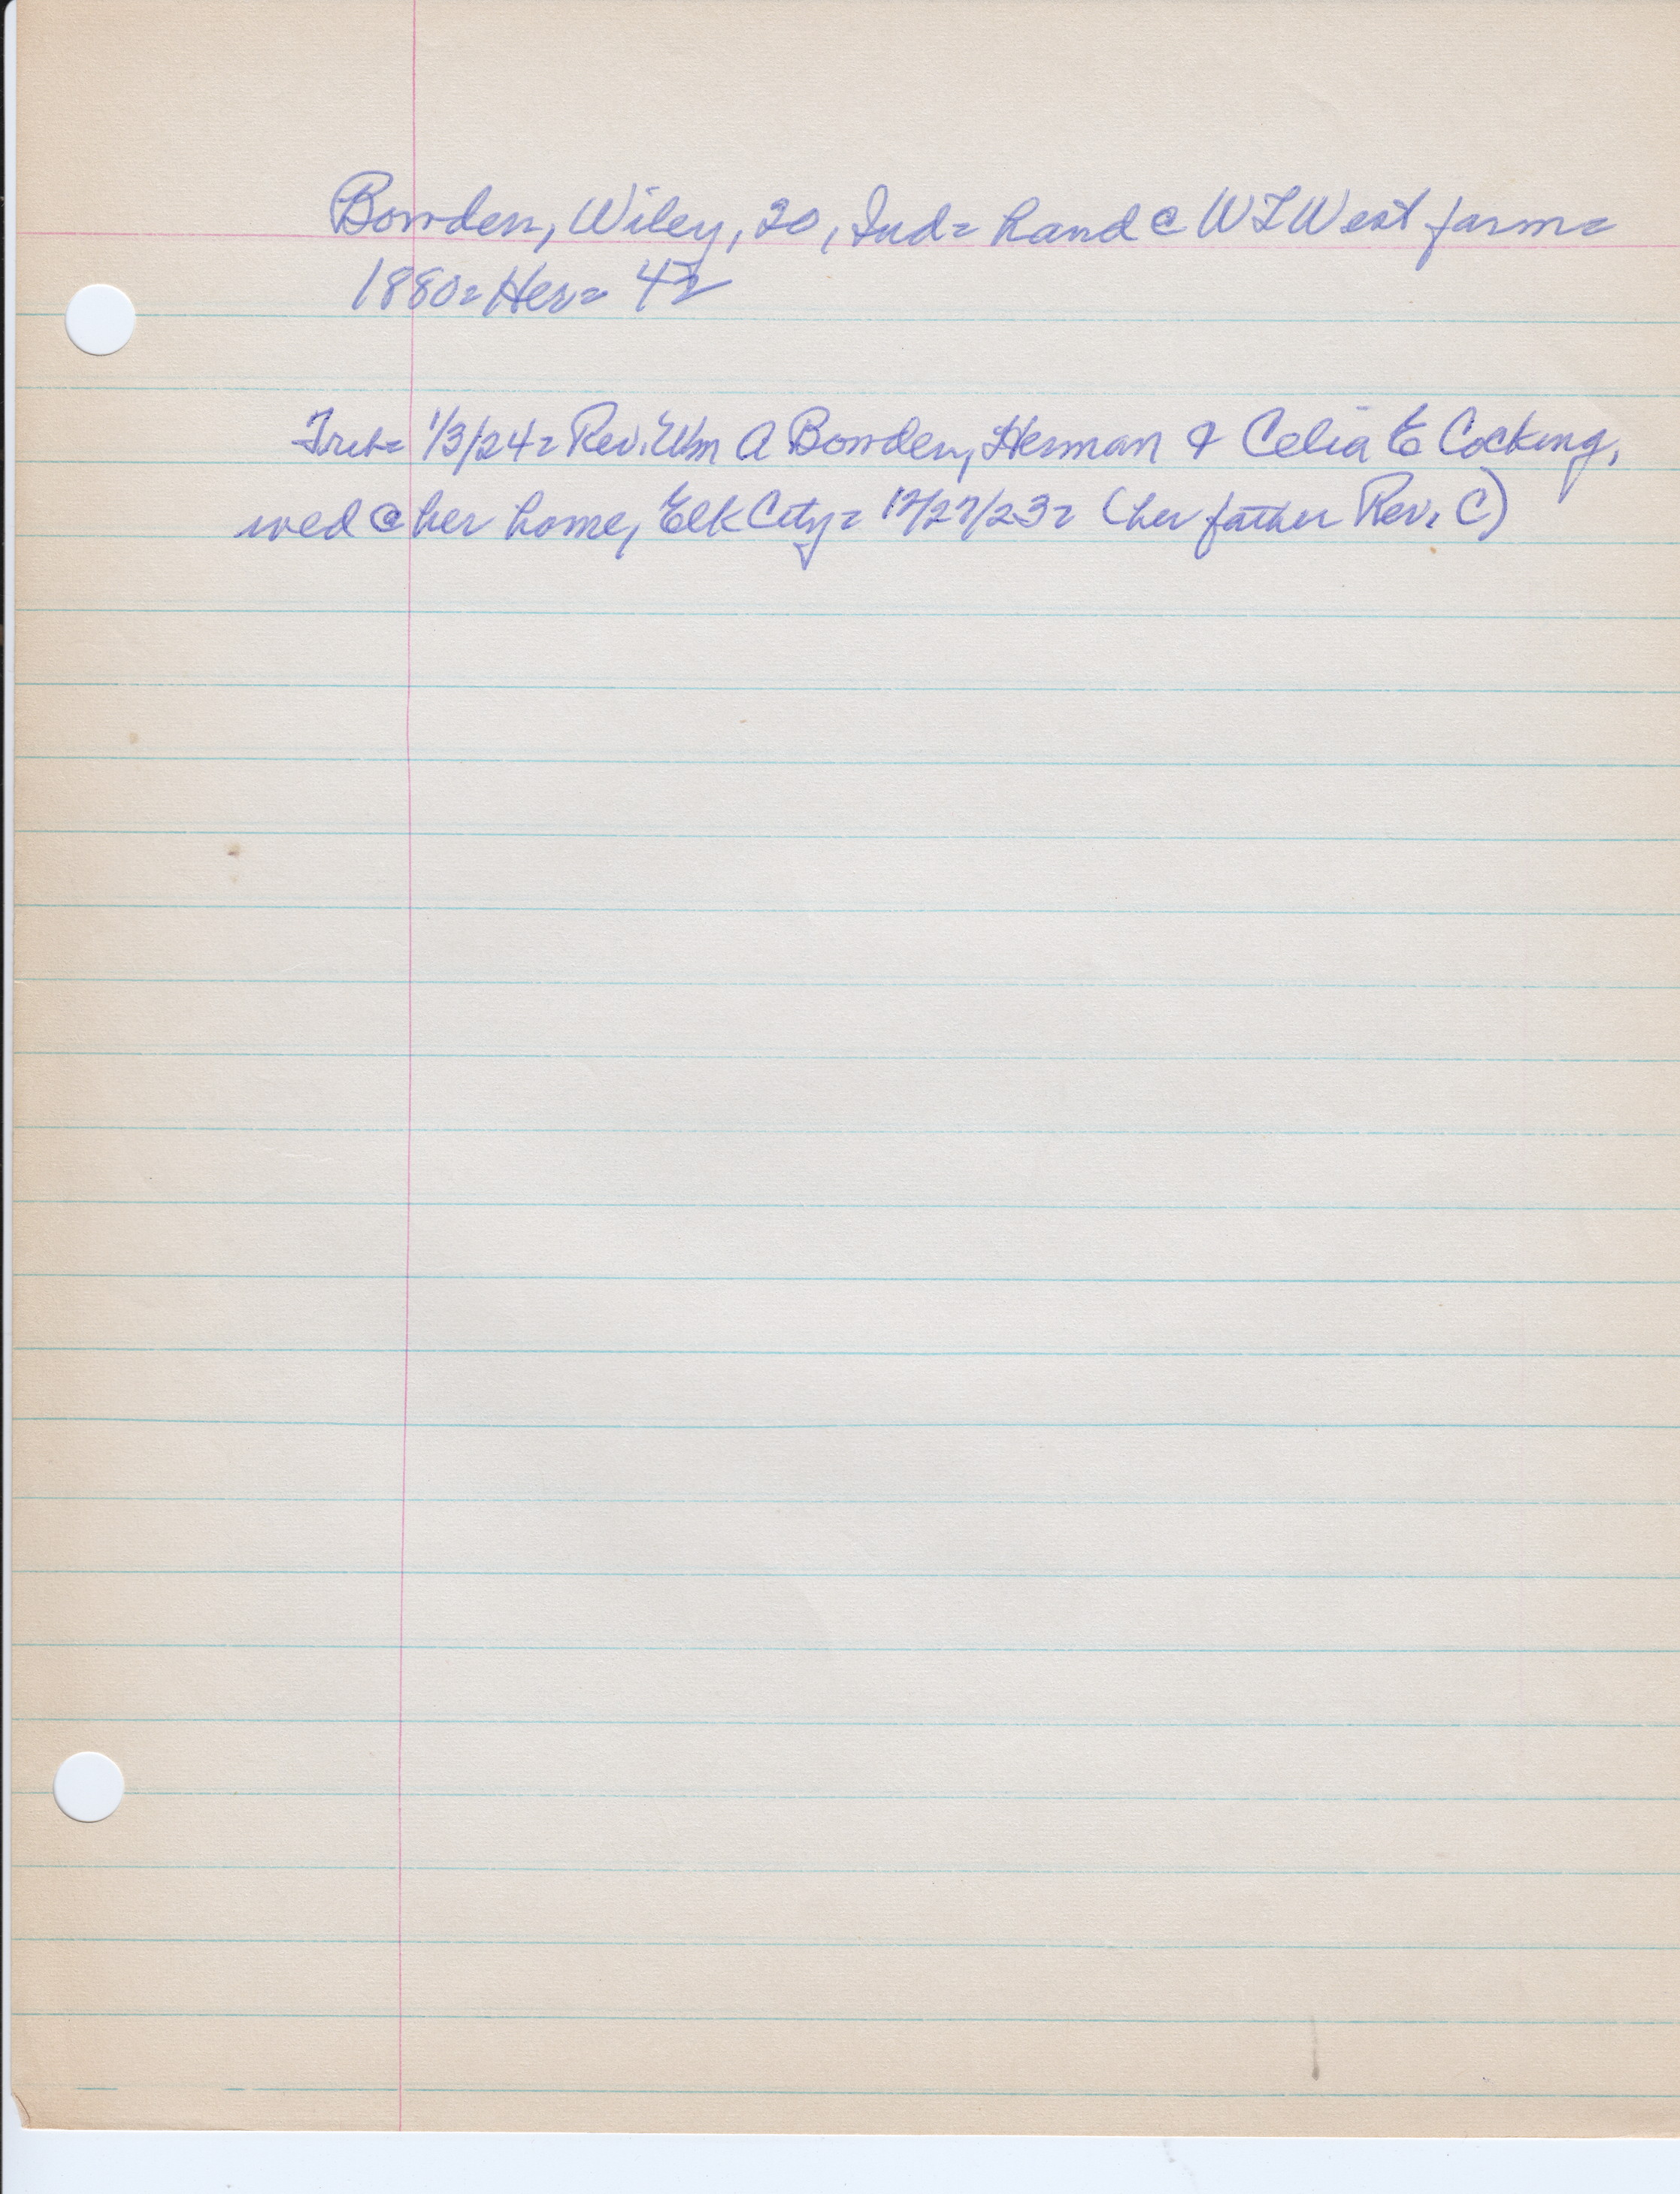 Bowden, Wiley, 20, Ind= hand @ W L West farm=
1880= Her= 42
Trib= 1/3/24= Rev. Wm A Bowden, Herman & Celia E Cocking,
wed @ her home, Elk City= 12/27/23= (her father Rev. C)